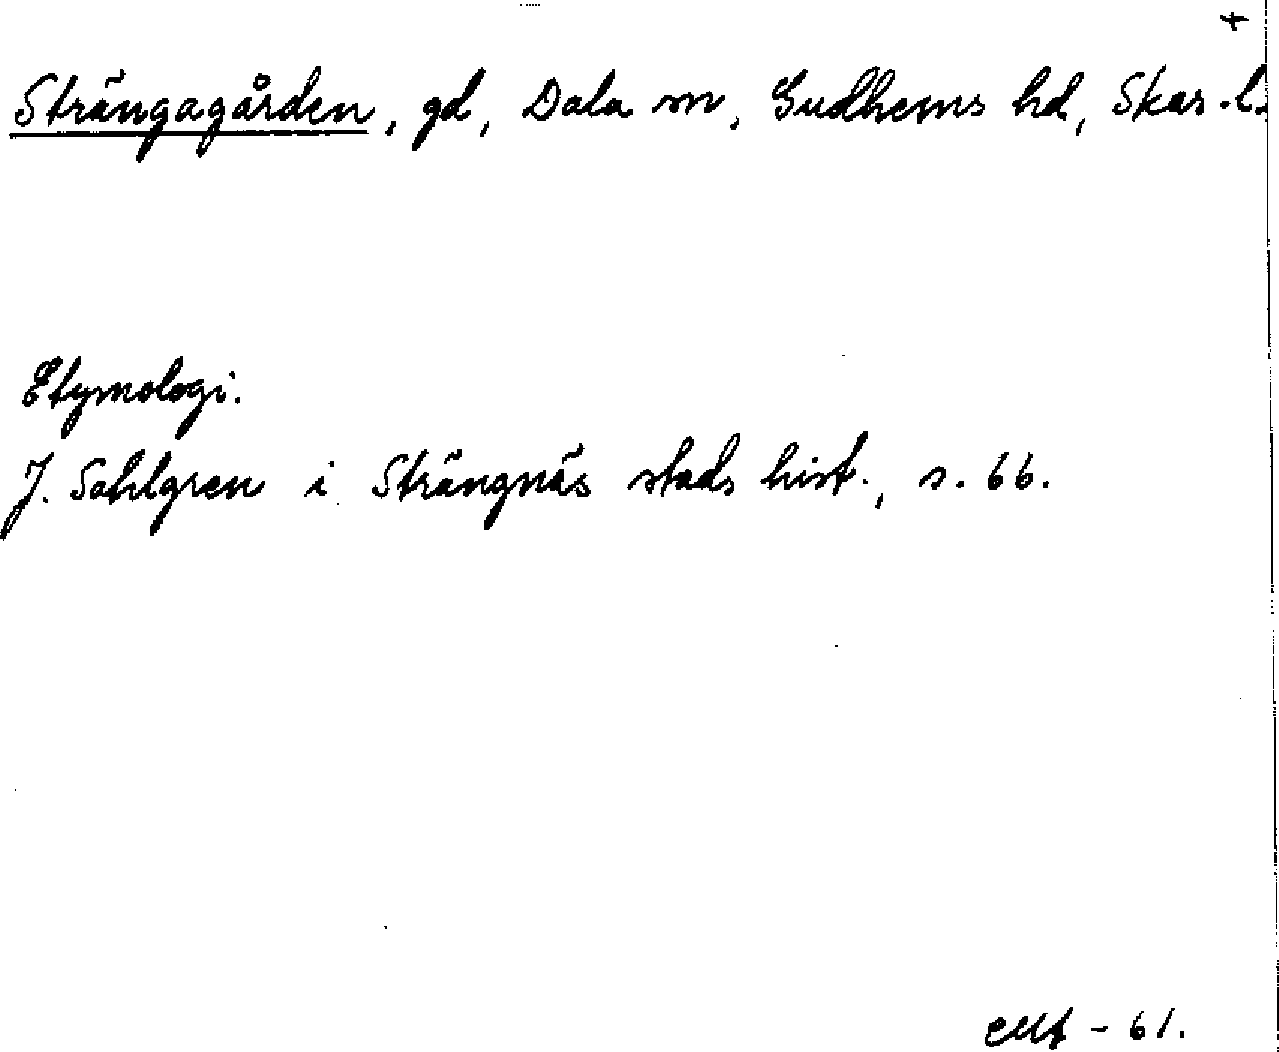 +
Strängagården, gd, Dala sn, Gudhems hd, Skar. l.
Etymologi.
J. Sahlgren i Strängnäs stads hist., s. 66.
- 61.